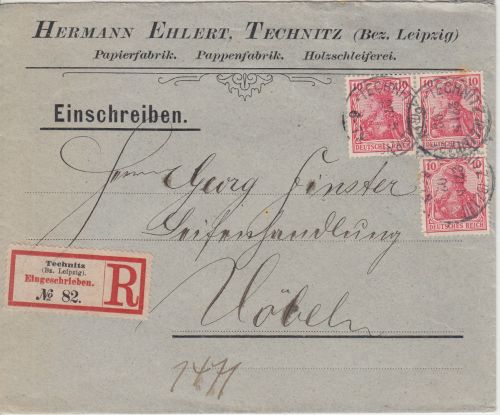 HERMANN EHLERT, TECHNITZ (Bez. Leipzig)
Papierfabrik. Pappenfabrik. Holzschleiferei.
10 10
DEUTSCHES REICH
10
DEUTSCHES REICH
10
DEUTSCHES REICH
TECHNITZ
Einschreiben.
Herrn Georg Finster
Seifenhandlung
Technitz
(Bz. Leipzig).
Eingeschrieben.
№ 82.
R
1471